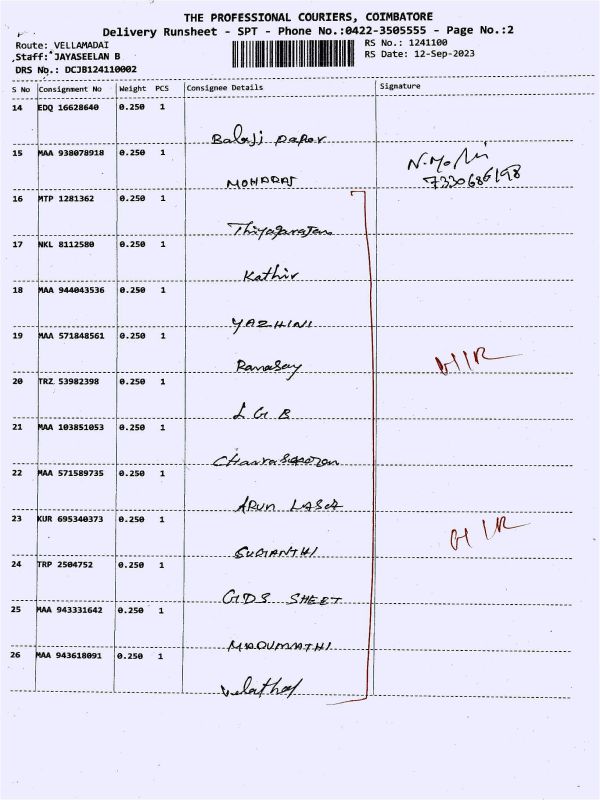 THE PROFESSIONAL COURIERS, COIMBATORE
Delivery Runsheet - SPT - Phone No.:0422-3505555 - Page No.:2
Route: VELLAMADAI
RS No.: 1241100
Staff: JAYASEELAN B
RS Date: 12-Sep-2023
DRS No.: DCJB124110002
S No Consignment No Weight PCS Consignee Details Signature
14 EDQ 16628640 0.250 1
Balaji paper
15 MAA 938078918 0.250 1
MOHARAJ
7330686198
16 MTP 1281362 0.250 1
Thiyagarajan
17 NKL 8112580 0.250 1
Kathir
18 MAA 944043536 0.250 1
YAZHINI
19 MAA 571848561 0.250 1
20 TRZ 53982398 0.250 1
L G B
21 MAA 103851053 0.250 1
22 MAA 571589735 0.250 1
ARUN
23 KUR 695340373 0.250 1
SUGANTHI
24 TRP 2504752 0.250 1
SHEET
25 MAA 943331642 0.250 1
MADUMATHI
26 MAA 943618091 0.250 1